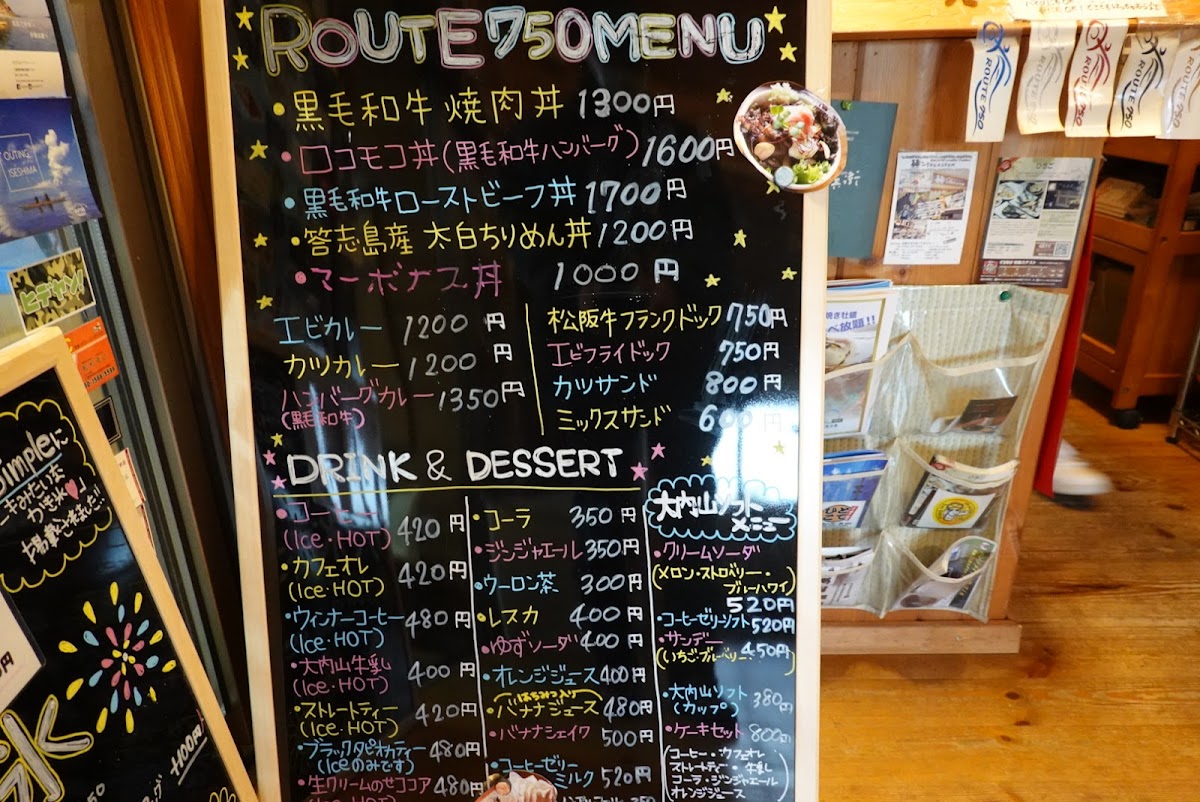 ROUTE750MENU
・黒毛和牛 焼肉丼 1300円
・ロコモコ丼(黒毛和牛ハンバーグ) 1600円
・黒毛和牛ローストビーフ丼 1700円
・答志島産 太白ちりめん丼 1200円
・マーボナス丼 1000円
エビカレー 1200円
カツカレー 1200円
ハンバーグカレー 1350円
(黒毛和牛)
松阪牛フランクドック 750円
エビフライドック 750円
カツサンド 800円
ミックスサンド 600
DRINK & DESSERT
・コーヒー 420円
(Ice・HOT)
・カフェオレ 420円
(Ice・HOT)
・ウィンナーコーヒー 480円
(Ice・HOT)
・大内山牛乳 400円
(Ice・HOT)
・ストレートティー 420円
(Ice・HOT)
・ブラックタピオカティー 480円
(Iceのみです)
・生クリームのせココア 480円
・コーラ 350円
・ジンジャエール 350円
・ウーロン茶 300円
・レスカ 400円
・ゆずソーダ 400円
・オレンジジュース 400円
はちみつ入り
・バナナジュース 480円
・バナナシェイク 500円
・コーヒーゼリー
ミルク 520円
大内山ソフト
メニュー
・クリームソーダ
(メロン・ストロベリー・
ブルーハワイ)
520円
・コーヒーゼリーソフト 520円
・サンデー
(いちご・ブルーベリー) 450円
・大内山ソフト
(カップ) 380円
・ケーキセット 800円
(コーヒー・カフェオレ
ストレートティー・牛乳
コーラ・ジンジャエール
オレンジジュース)
ROUTE 750
ROUTE 750
ROUTE 750
ROUTE 750
OUTING
ISESHIMA
ヒデヤン!
Simpleに
かき氷
氷
+100円